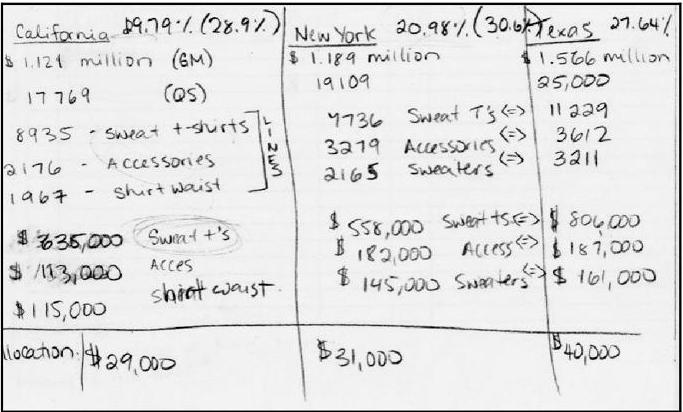 California 29.79% (28.9%)
$ 1.121 million (GM)
17769 (QS)
8935 - sweat t-shirts
2176 - Accessories
1967 - shirt waist
LINES
$ 635,000 Sweat t's
$ 113,000 Acces
$115,000 shirt waist.
llocation: $29,000
New York 20.98% (30.6%)
$ 1.189 million
19109
7736 Sweat T's <=>
3279 Accessories <=>
2165 Sweaters <=>
$ 558,000 Sweat ts <=>
$ 182,000 Access <=>
$ 145,000 Sweaters <=>
$31,000
Texas 27.64%
$ 1.566 million
25,000
11229
3612
3211
$ 806,000
$ 187,000
$ 161,000
$40,000